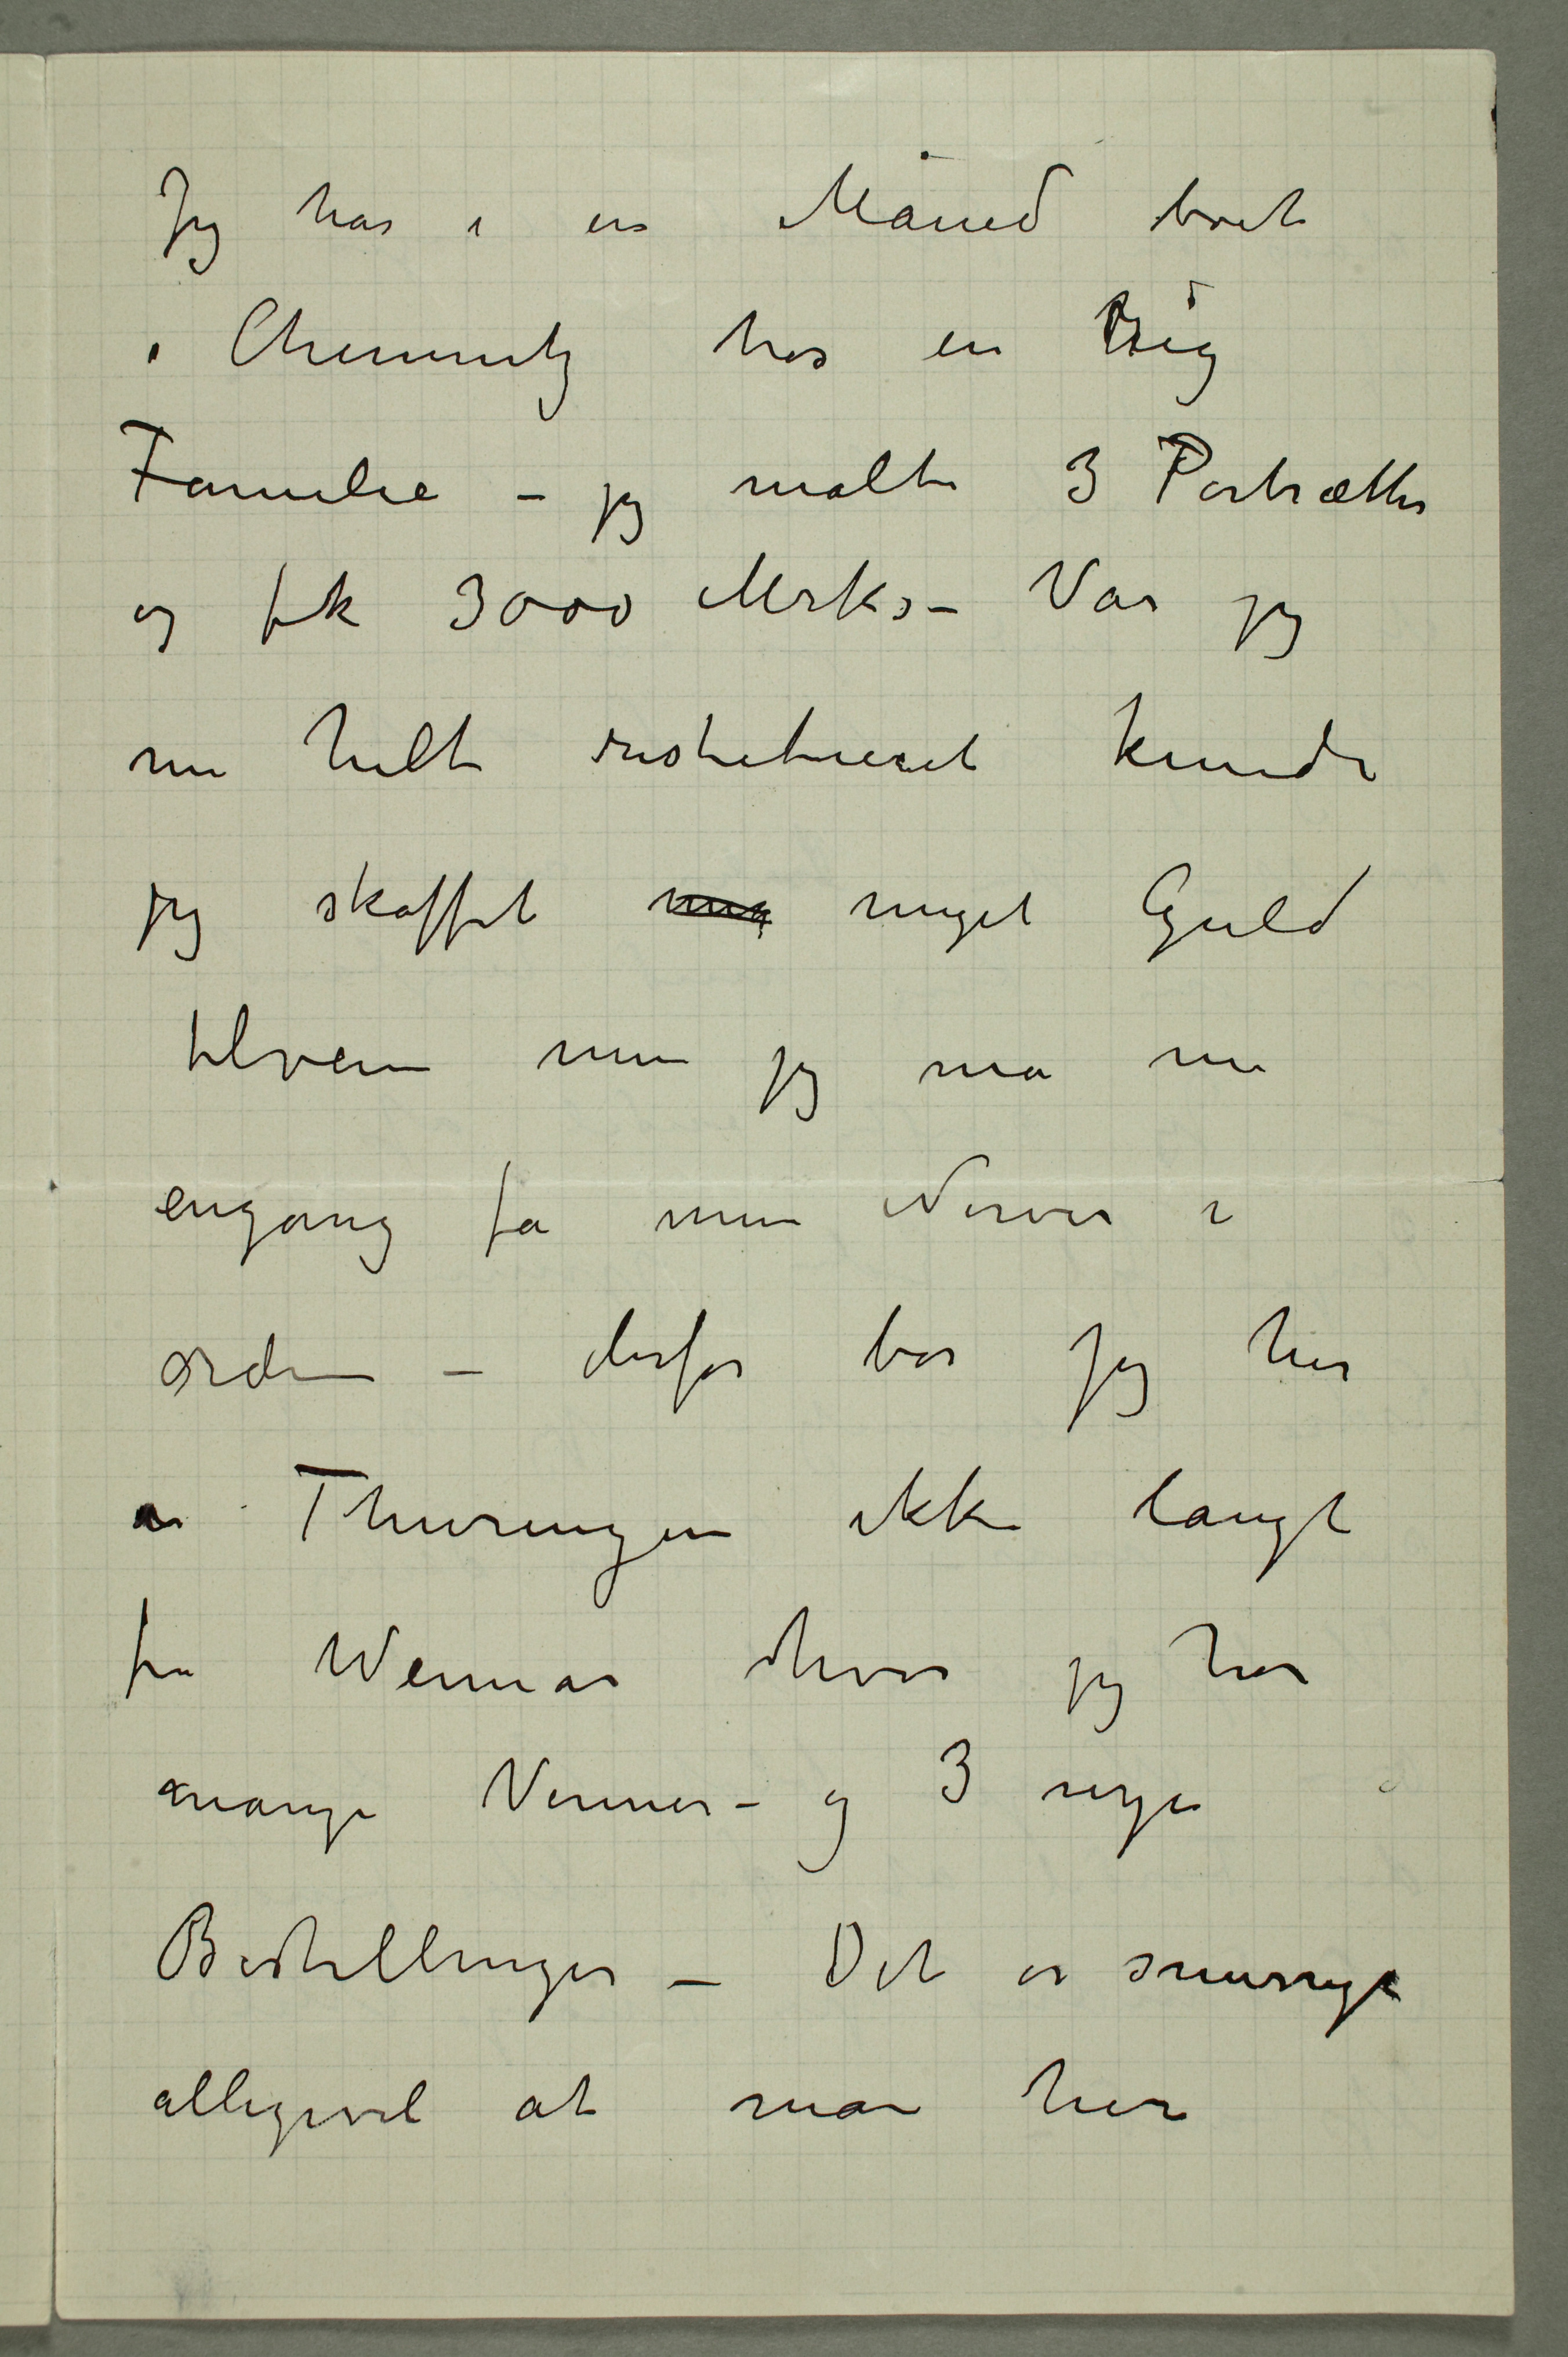 Jeg har i en Måned boet
i Chemnitz hos en rig
Familie – jeg malte 3 Portrætter
og fik 3000 Mrks – Var jeg
nu helt restitueret kunde
jeg skaffet meg meget Guld
tilveie men jeg må nu
engang få mine Nerver i
orden – derfor bor Jeg her
i Thuringen ikke langt
fra Weimar hvor jeg har
mange Venner – og 3 nye
Bestillinger – Det er snurrigt
alligevel at man her